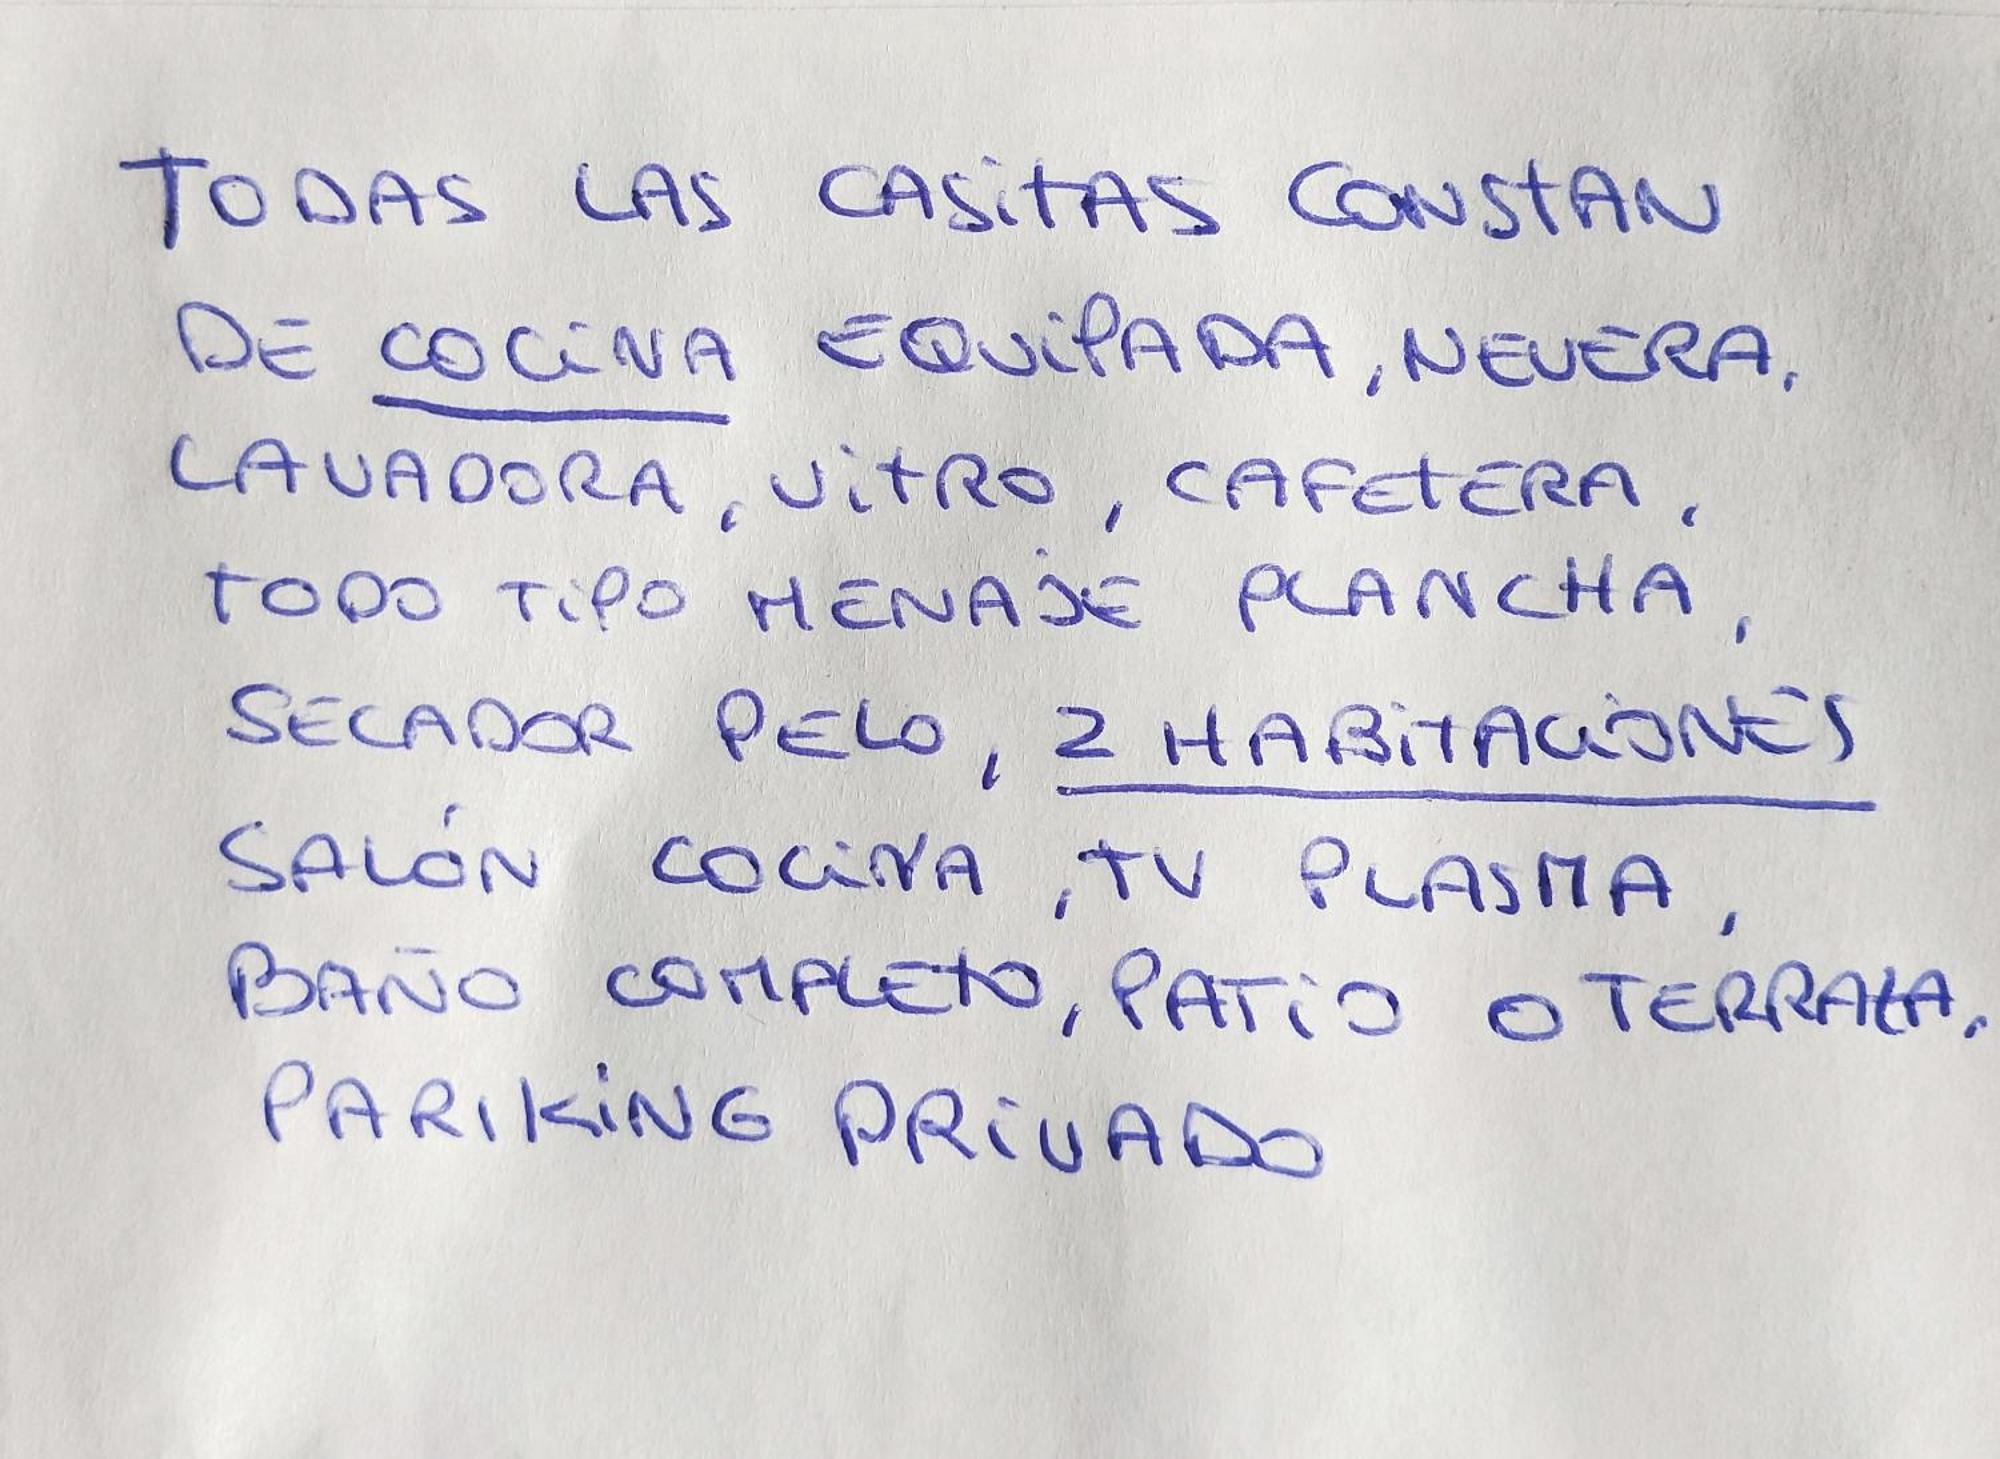 TODAS LAS CASITAS CONSTAN
DE COCINA EQUIPADA, NEVERA,
LAVADORA, VITRO, CAFETERA,
TODO TIPO MENAJE PLANCHA,
SECADOR PELO, 2 HABITACIONES
SALÓN COCINA, TV PLASMA,
BAÑO COMPLETO, PATIO O TERRAZA,
PARKING PRIVADO